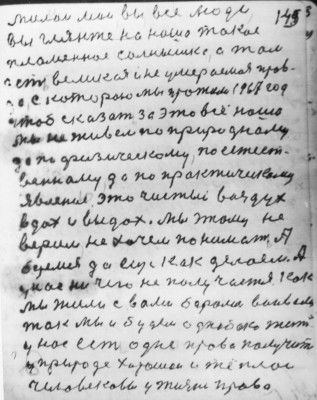 милаи мои вы все люди 145
вы гляньте на наша такое
пламенное солнышко а там
ест великая i не умераемая прав-
да с которою мы прожили 1967 год
чтоб сказат за это всё нашо
мы не живем по природному
да по физическому, по естест-
венному да по практическому
явление, это чистый воздух
вдох и выдох. Мы этому не
верим не хочем понимат, А
да как делаем. А
у нас ни чего не получаится. Как
мы жили с вами
так мы и будем жить
у нас ест одне права получить
у природе хорошои и тёплое
человекови у жизни право